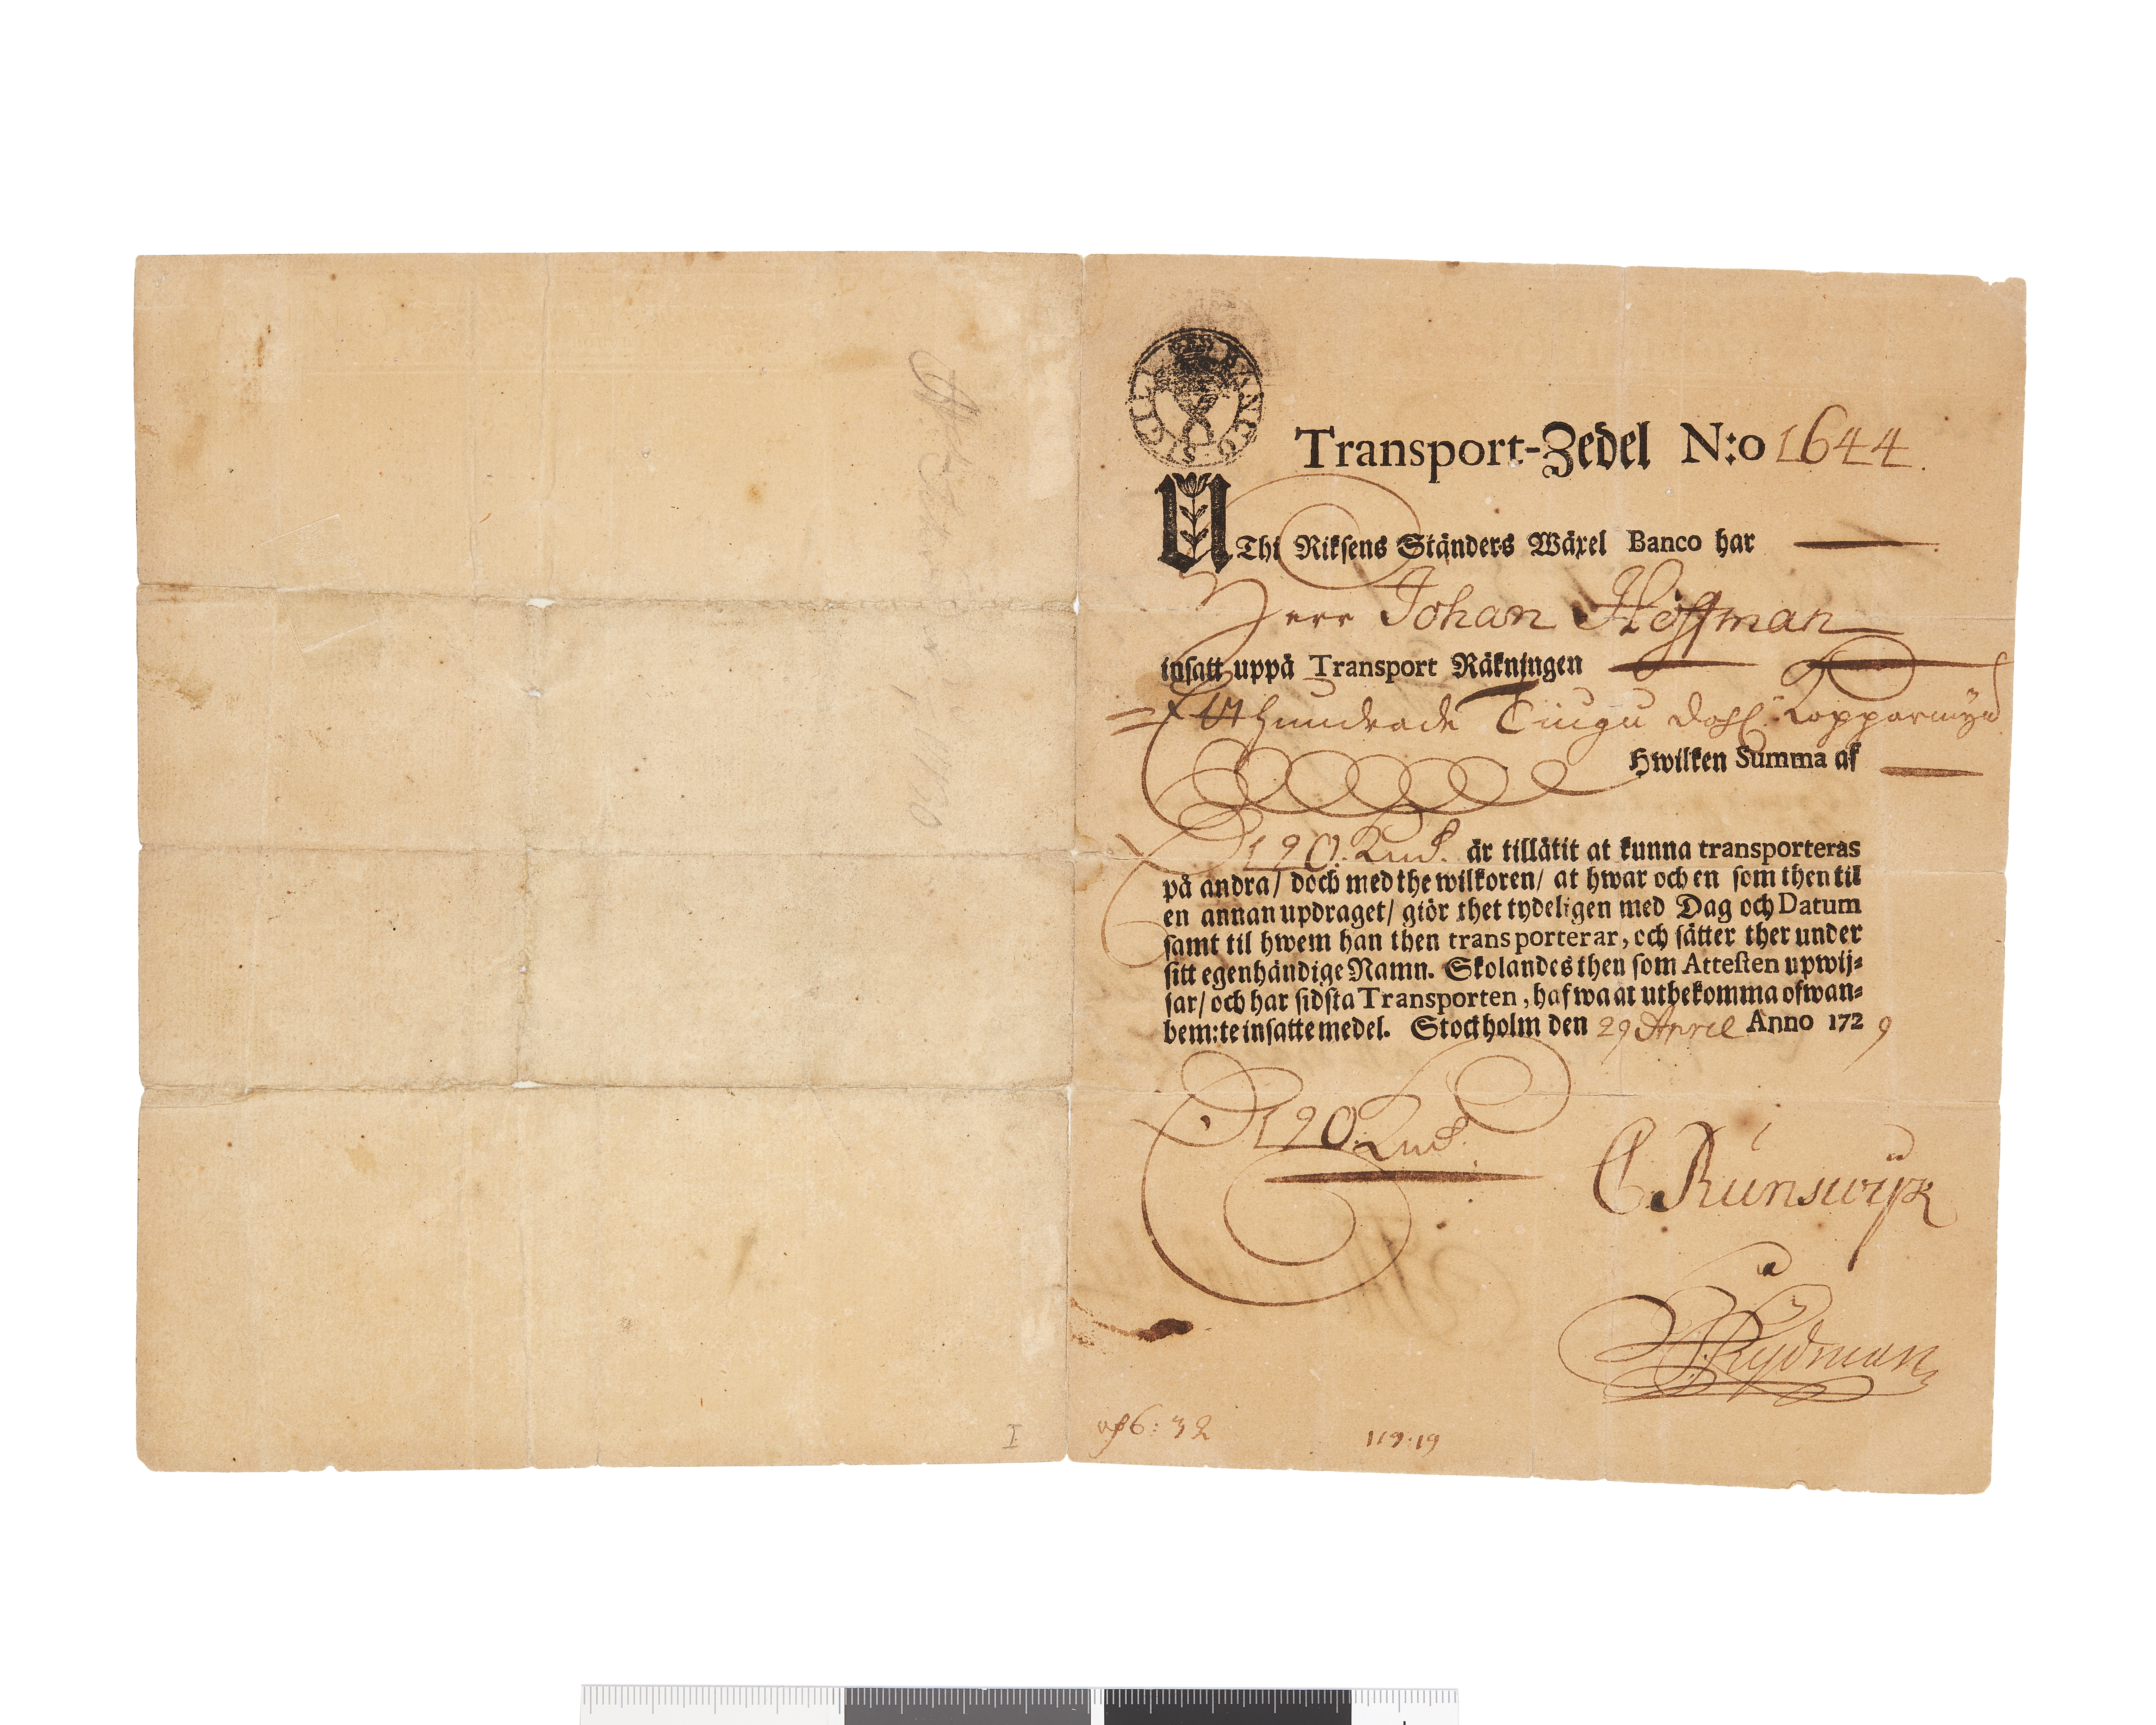 Transport-Zedel N:o 1644.
UThi Riksens Ständers Wäxel Banco har
Herr Johan Hoffman
insatt uppå Transport Räkningen
Ett hundrade Tiugu dahl. Kopparmynt
Hwilken Summa af
D 120. Kmt. är tillåtit at kunna transporteras
på andra/ doch med the wilkoren/ at hwar och en som then til
en annan updraget/ giör thet tydeligen med Dag och Datum
samt til hwem han then transporterar, och sätter ther under
sitt egenhändige Namn. Skolandes then som Attesten upwij-
sar/ och har sidsta Transporten, hafwa at utbekomma ofwan-
bem:te insatte medel. Stockholm den 29 April Anno 1729
D 120. Kmt.
C. Runswijk
Rydman
6: 32
119:19
I